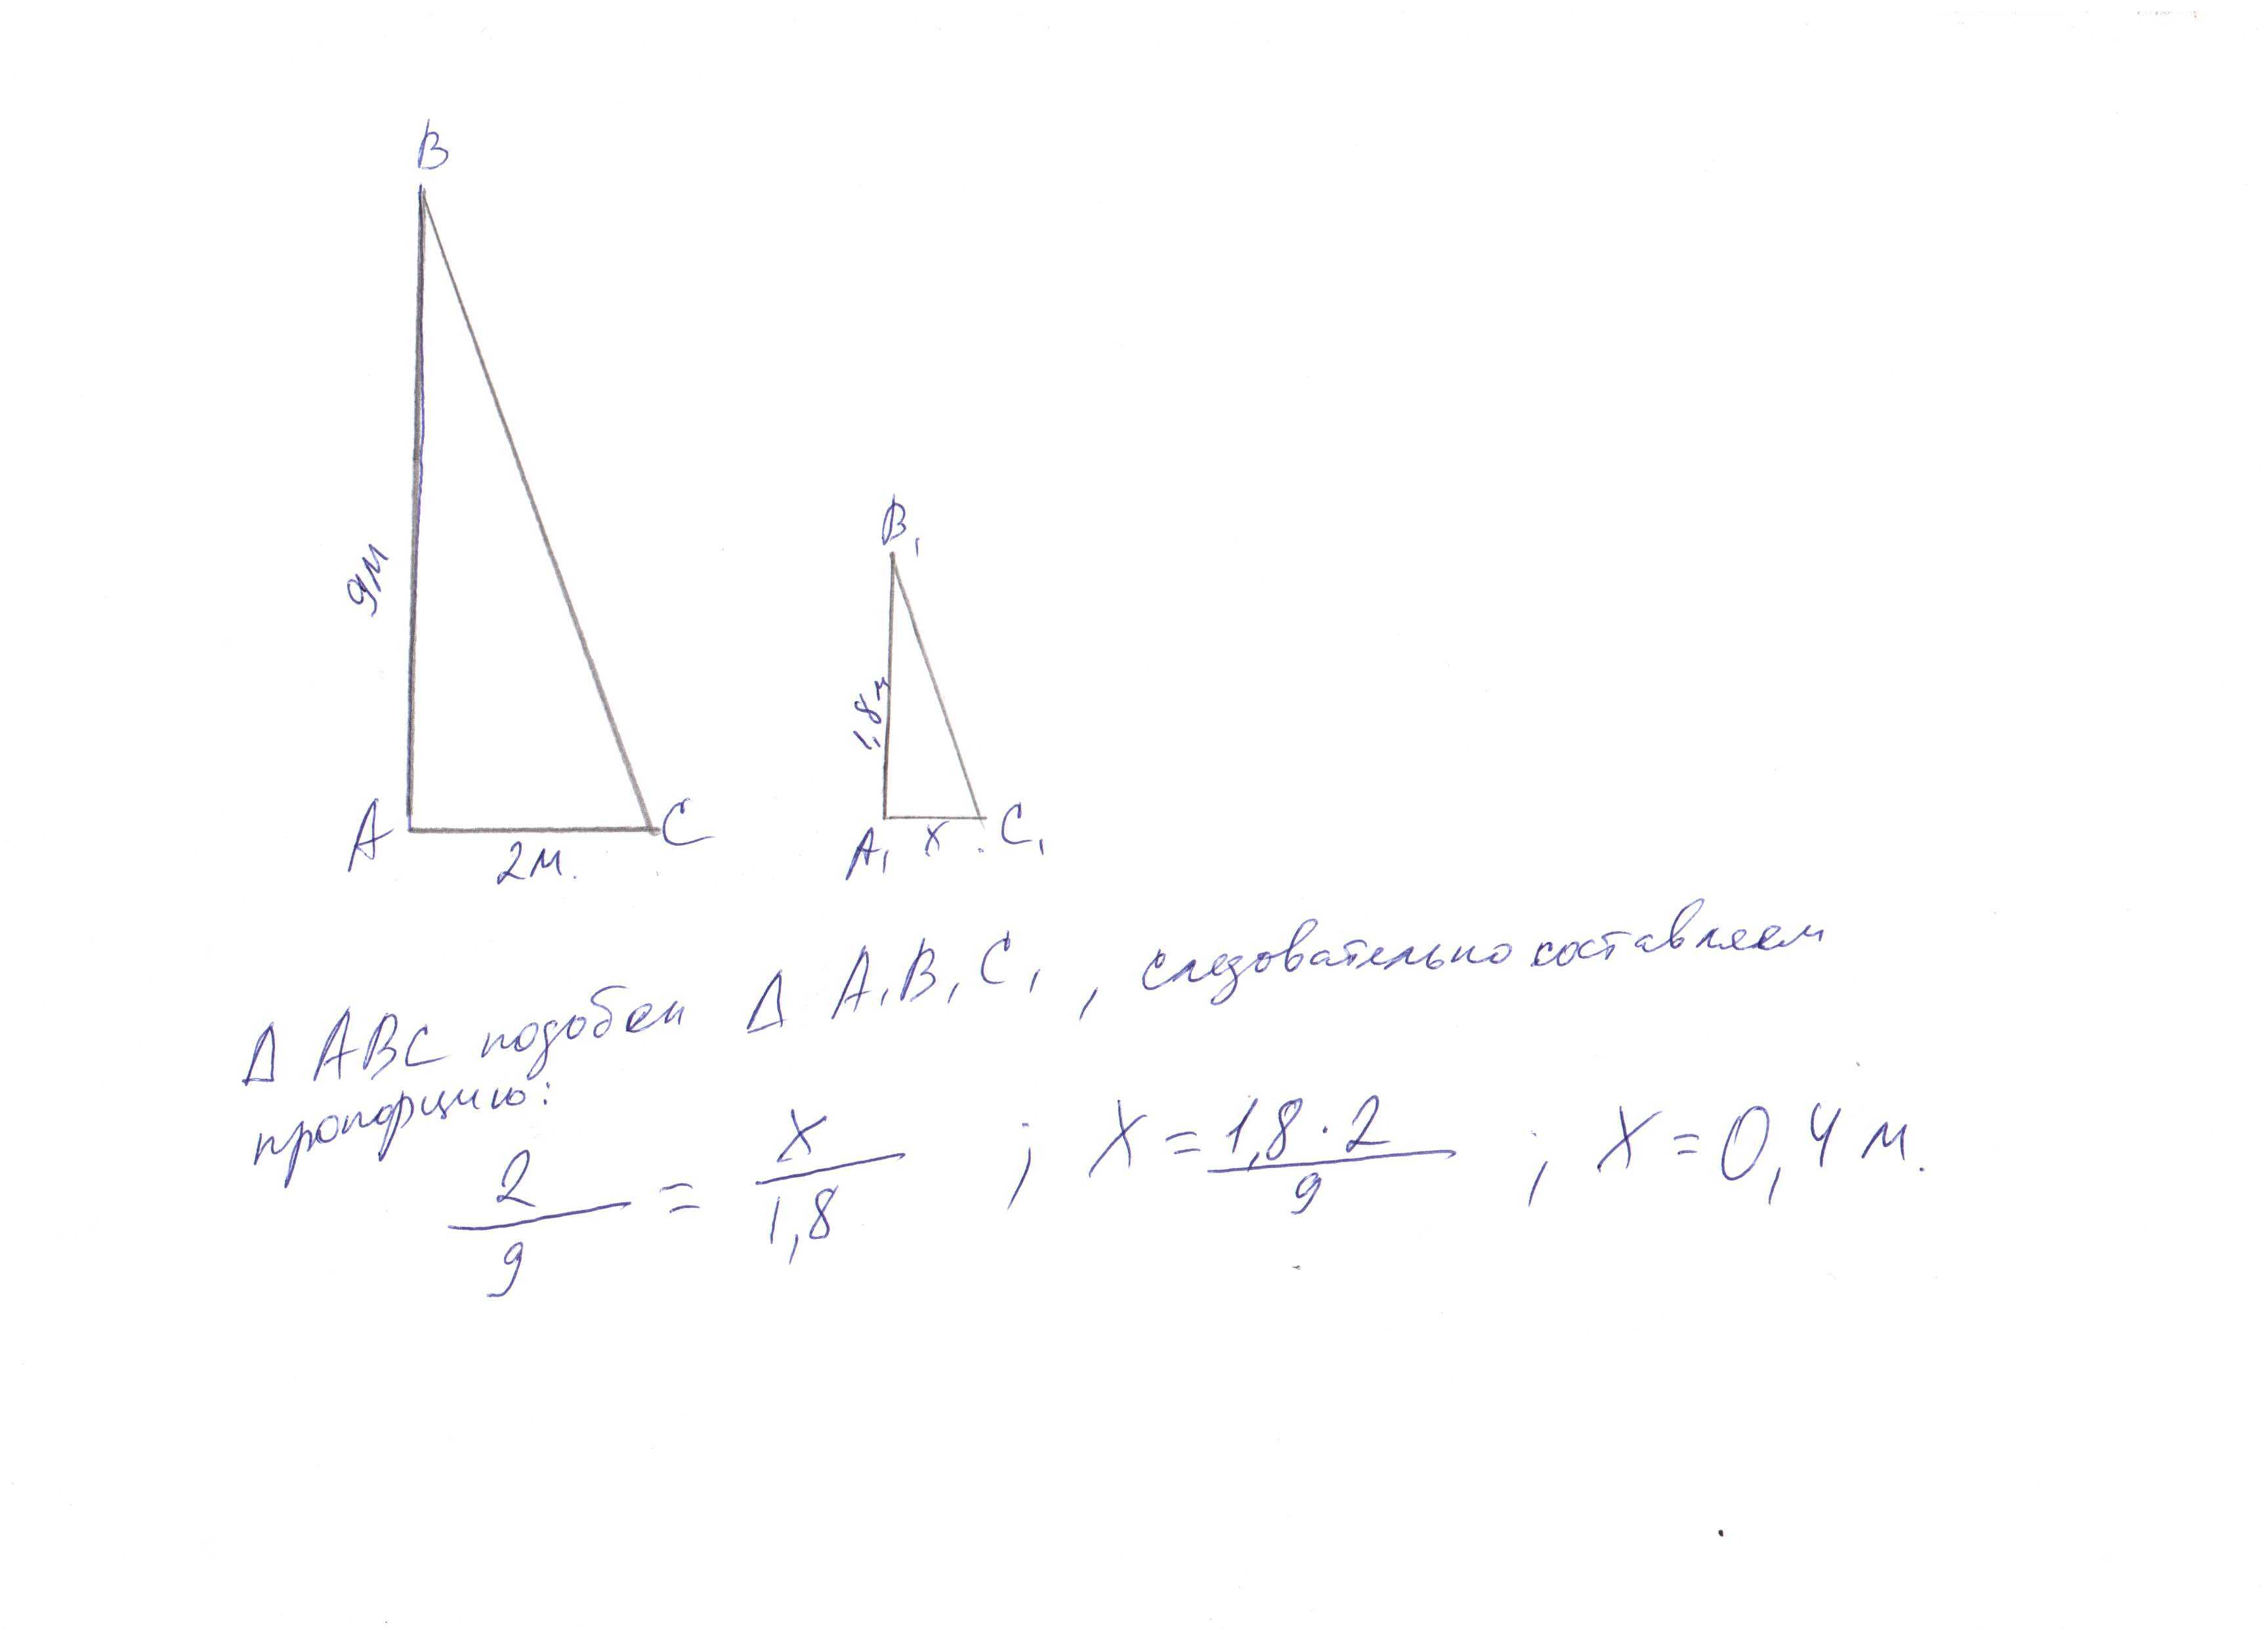 B
9м
A
2м.
C
B₁
1,8м
A₁
x
C₁
Δ ABC подобен Δ A₁B₁C₁, следовательно составляем
пропорцию:
2/9 = x/1,8 ; x = 1,8·2/9 ; x = 0,4 м.